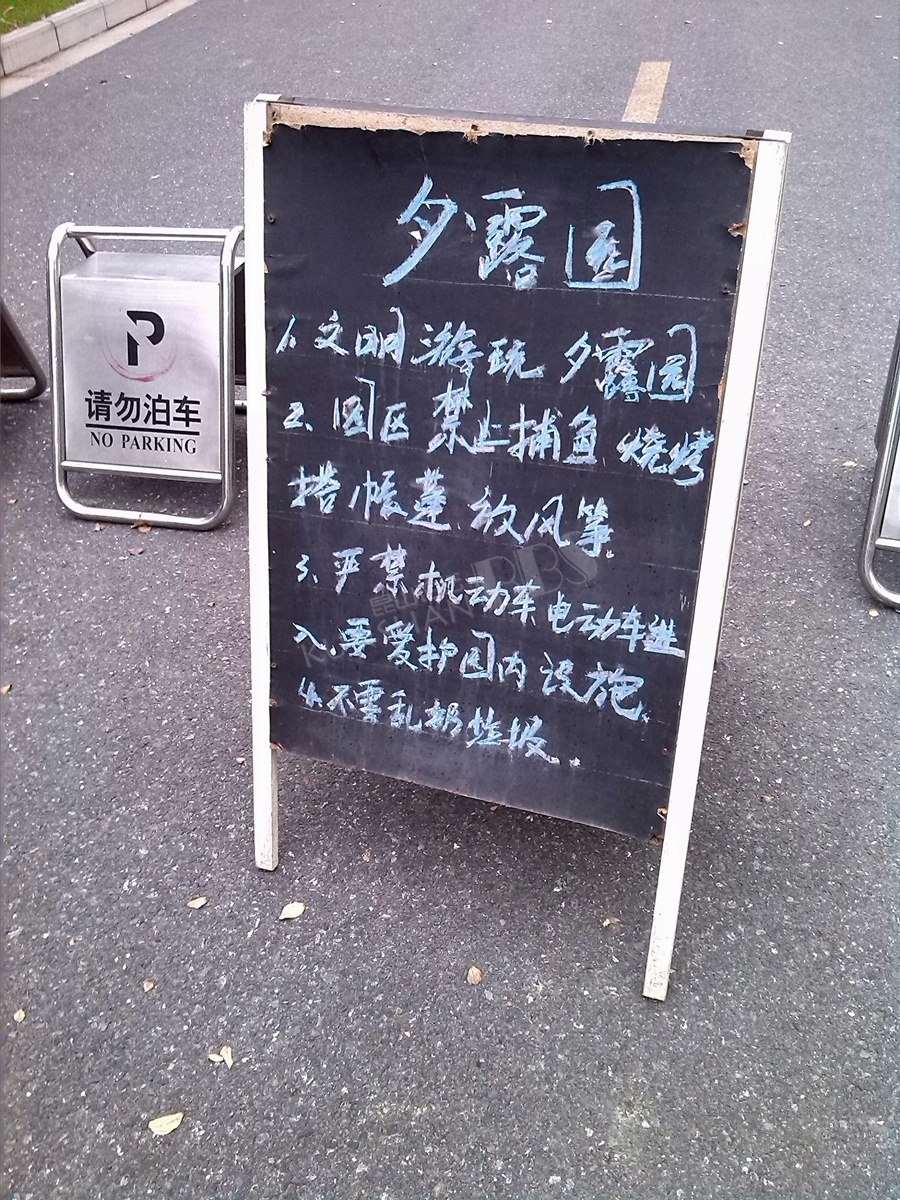 夕露园
1.文明游玩 夕露园
2.园区禁止捕鱼 烧烤
搭帐蓬 放风筝。
3.严禁机动车 电动车进
入.要爱护园内设施.
4.不要乱扔垃圾.
P
请勿泊车
NO PARKING